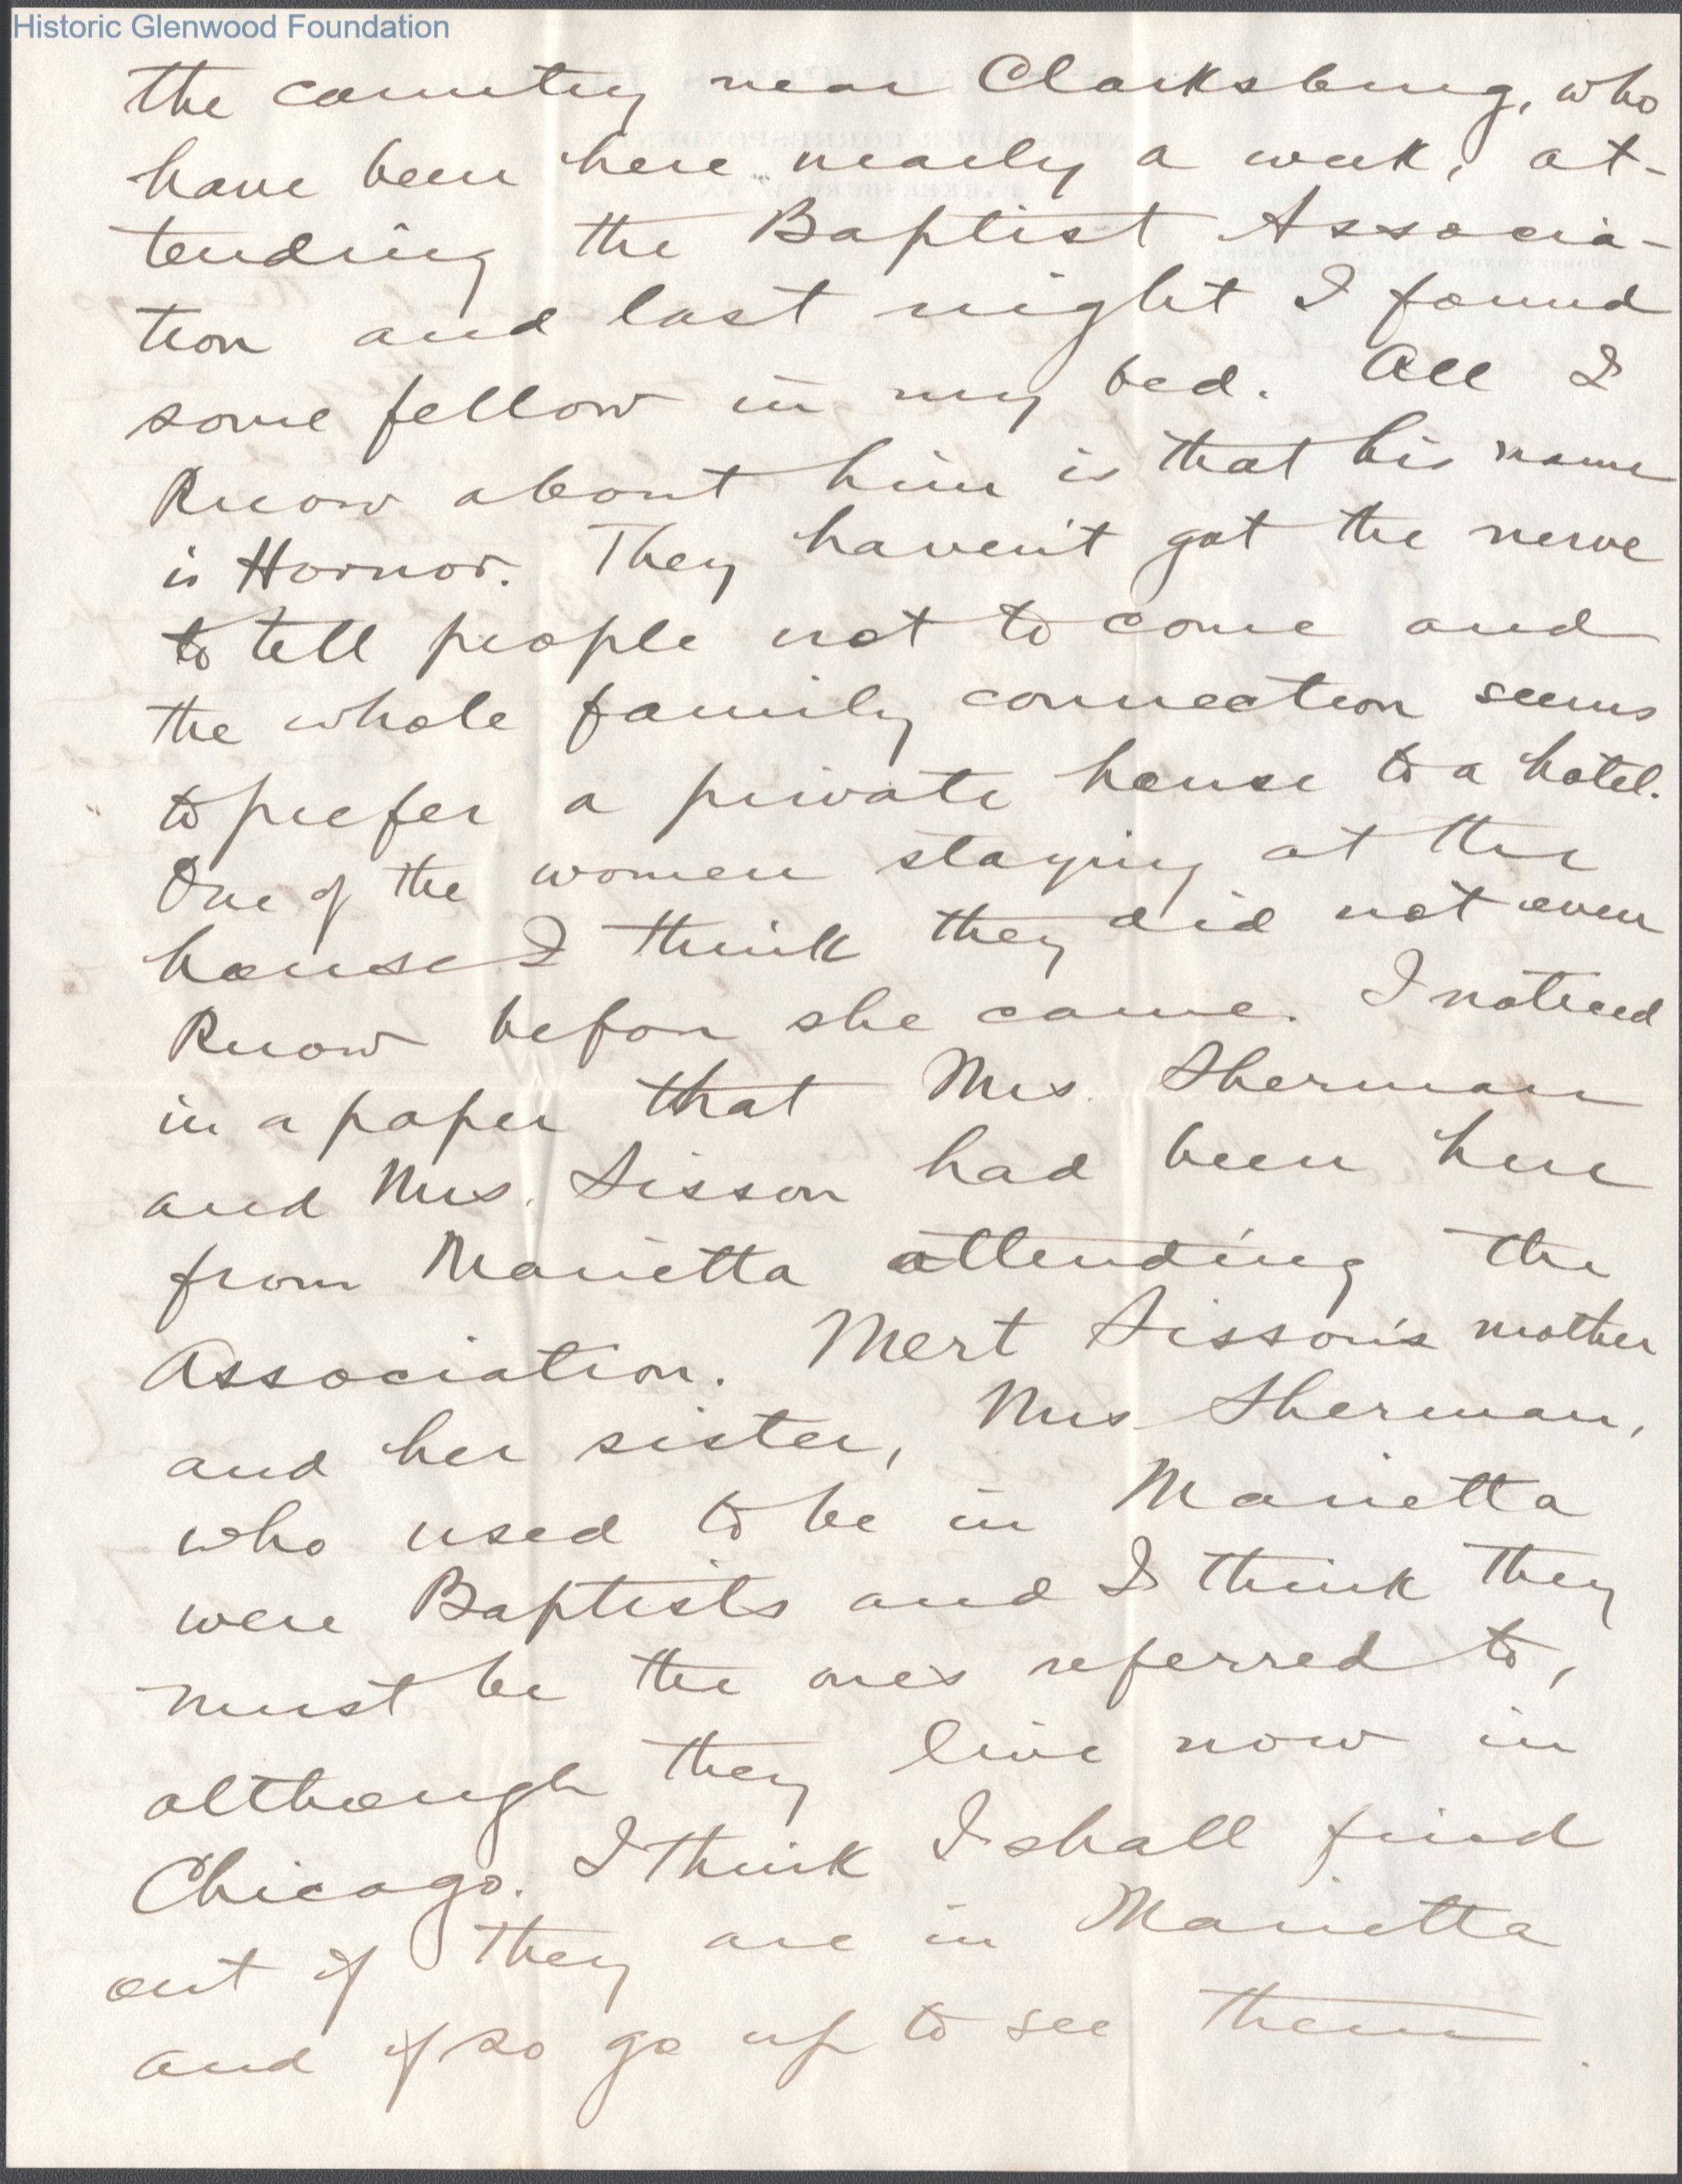 Historic Glenwood Foundation
the country near Clarksburg, who
have been here nearly a week, at-
tending the Baptist Associa-
tion and last night I found
some fellow in my bed. All I
Know about him is that his name
is Hornor. They haven't got the nerve
to tell people not to come and
the whole family connection seems
to prefer a private house to a hotel.
One of the women staying at the
house I think they did not even
Know before she came. I noticed
in a paper that Mrs. Sherman
and Mrs. Sisson had been here
from Marietta attending the
Association. Mert Sisson's mother
and her sister, Mrs Sherman,
who used to be in Marietta
were Baptists and I think they
must be the ones referred to,
although they live now in
Chicago. I think I shall find
out if they are in Marietta
and if so go up to see them.